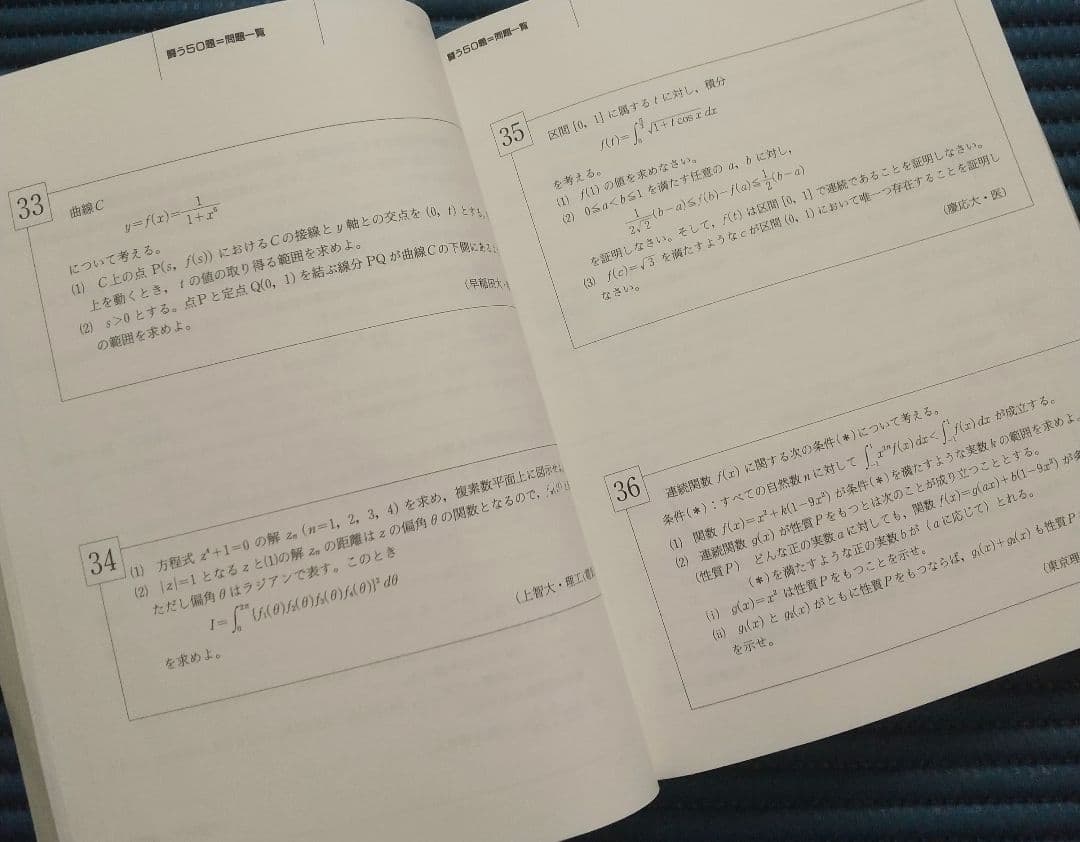 闘う50題=問題一覧
33
曲線C
y=f(x)=1/(1+x⁶)
について考える。
(1) C上の点 P(s, f(s)) におけるCの接線と y 軸との交点を (0, t) とする。
上を動くとき, t の値の取り得る範囲を求めよ。
(2) s>0 とする。点Pと定点 Q(0, 1) を結ぶ線分 PQ が曲線Cの下側にある
の範囲を求めよ。
(早稲田大・
34
(1) 方程式 z⁴+1=0 の解 zₙ (n=1, 2, 3, 4) を求め, 複素数平面上に図示せよ
(2) |z|=1 となる z と(1)の解 zₙ の距離は z の偏角 θ の関数となるので,
ただし偏角 θ はラジアンで表す。このとき
I=∫₀^{2π} {f₁(θ)f₂(θ)f₃(θ)f₄(θ)}² dθ
を求めよ。
(上智大・理工
闘う50題=問題一覧
35
区間 [0, 1] に属する t に対し, 積分
f(t)=∫₀^{π/2} √(1+t cos x) dx
を考える。
(1) f(1) の値を求めなさい。
(2) 0≦a<b≦1 を満たす任意の a, b に対し,
1/(2√2)(b−a)≦f(b)−f(a)≦1/2(b−a)
を証明しなさい。そして, f(t) は区間 [0, 1] で連続であることを証明しなさい。
(3) f(c)=√3 を満たすような c が区間 (0, 1) において唯一つ存在することを証明し
なさい。
(慶応大・医)
36
連続関数 f(x) に関する次の条件(*)について考える。
条件(*):すべての自然数 n に対して ∫₋₁¹ x²ⁿf(x)dx<∫₋₁¹ f(x)dx が成立する。
(1) 関数 f(x)=x²+k(1−9x²) が条件(*)を満たすような実数 k の範囲を求めよ。
(2) 連続関数 g(x) が性質Pをもつとは次のことが成り立つこととする。
(性質P) どんな正の実数 a に対しても, 関数 f(x)=g(ax)+b(1−9x²) が
(*)を満たすような正の実数 b が (a に応じて) とれる。
(i) g(x)=x² は性質Pをもつことを示せ。
(ii) g₁(x) と g₂(x) がともに性質Pをもつならば, g₁(x)+g₂(x) も性質P
を示せ。
(東京理